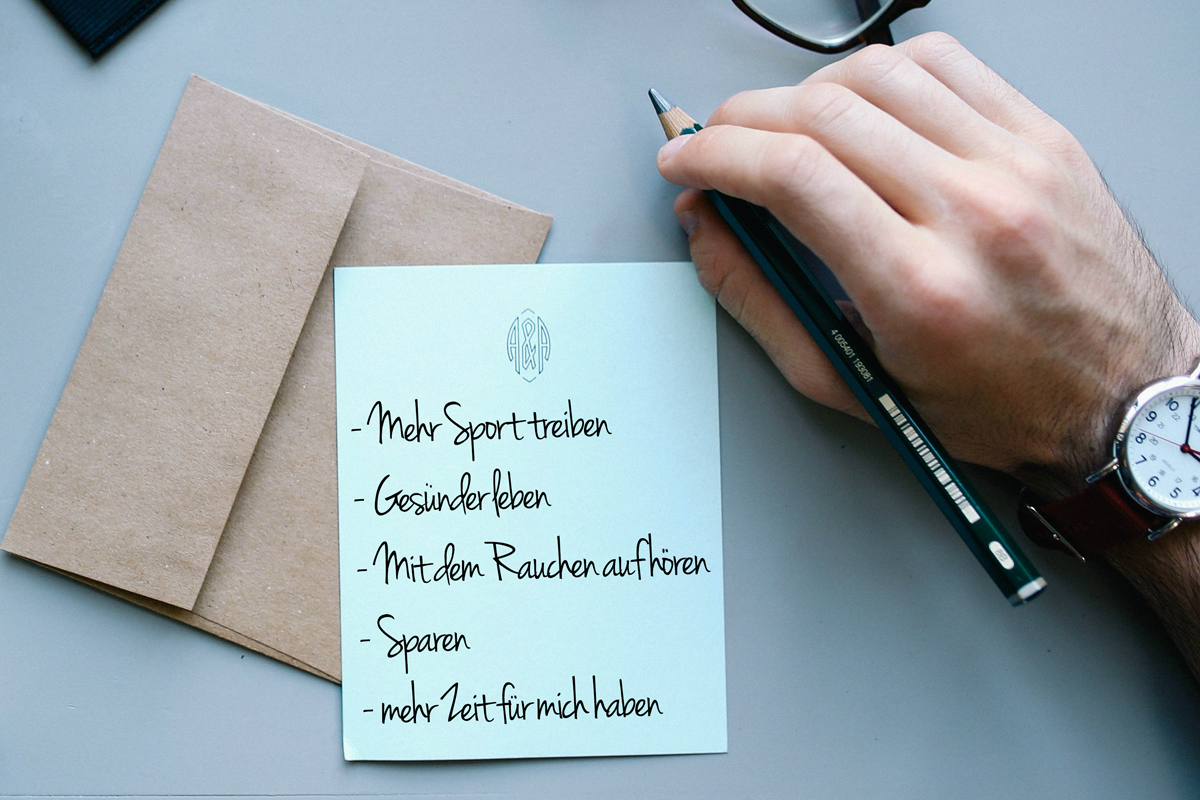 A&A
- Mehr Sport treiben
- Gesünder leben
- Mit dem Rauchen aufhören
- Sparen
- mehr Zeit für mich haben
4 005401 193081
10
9
8
7
6
5